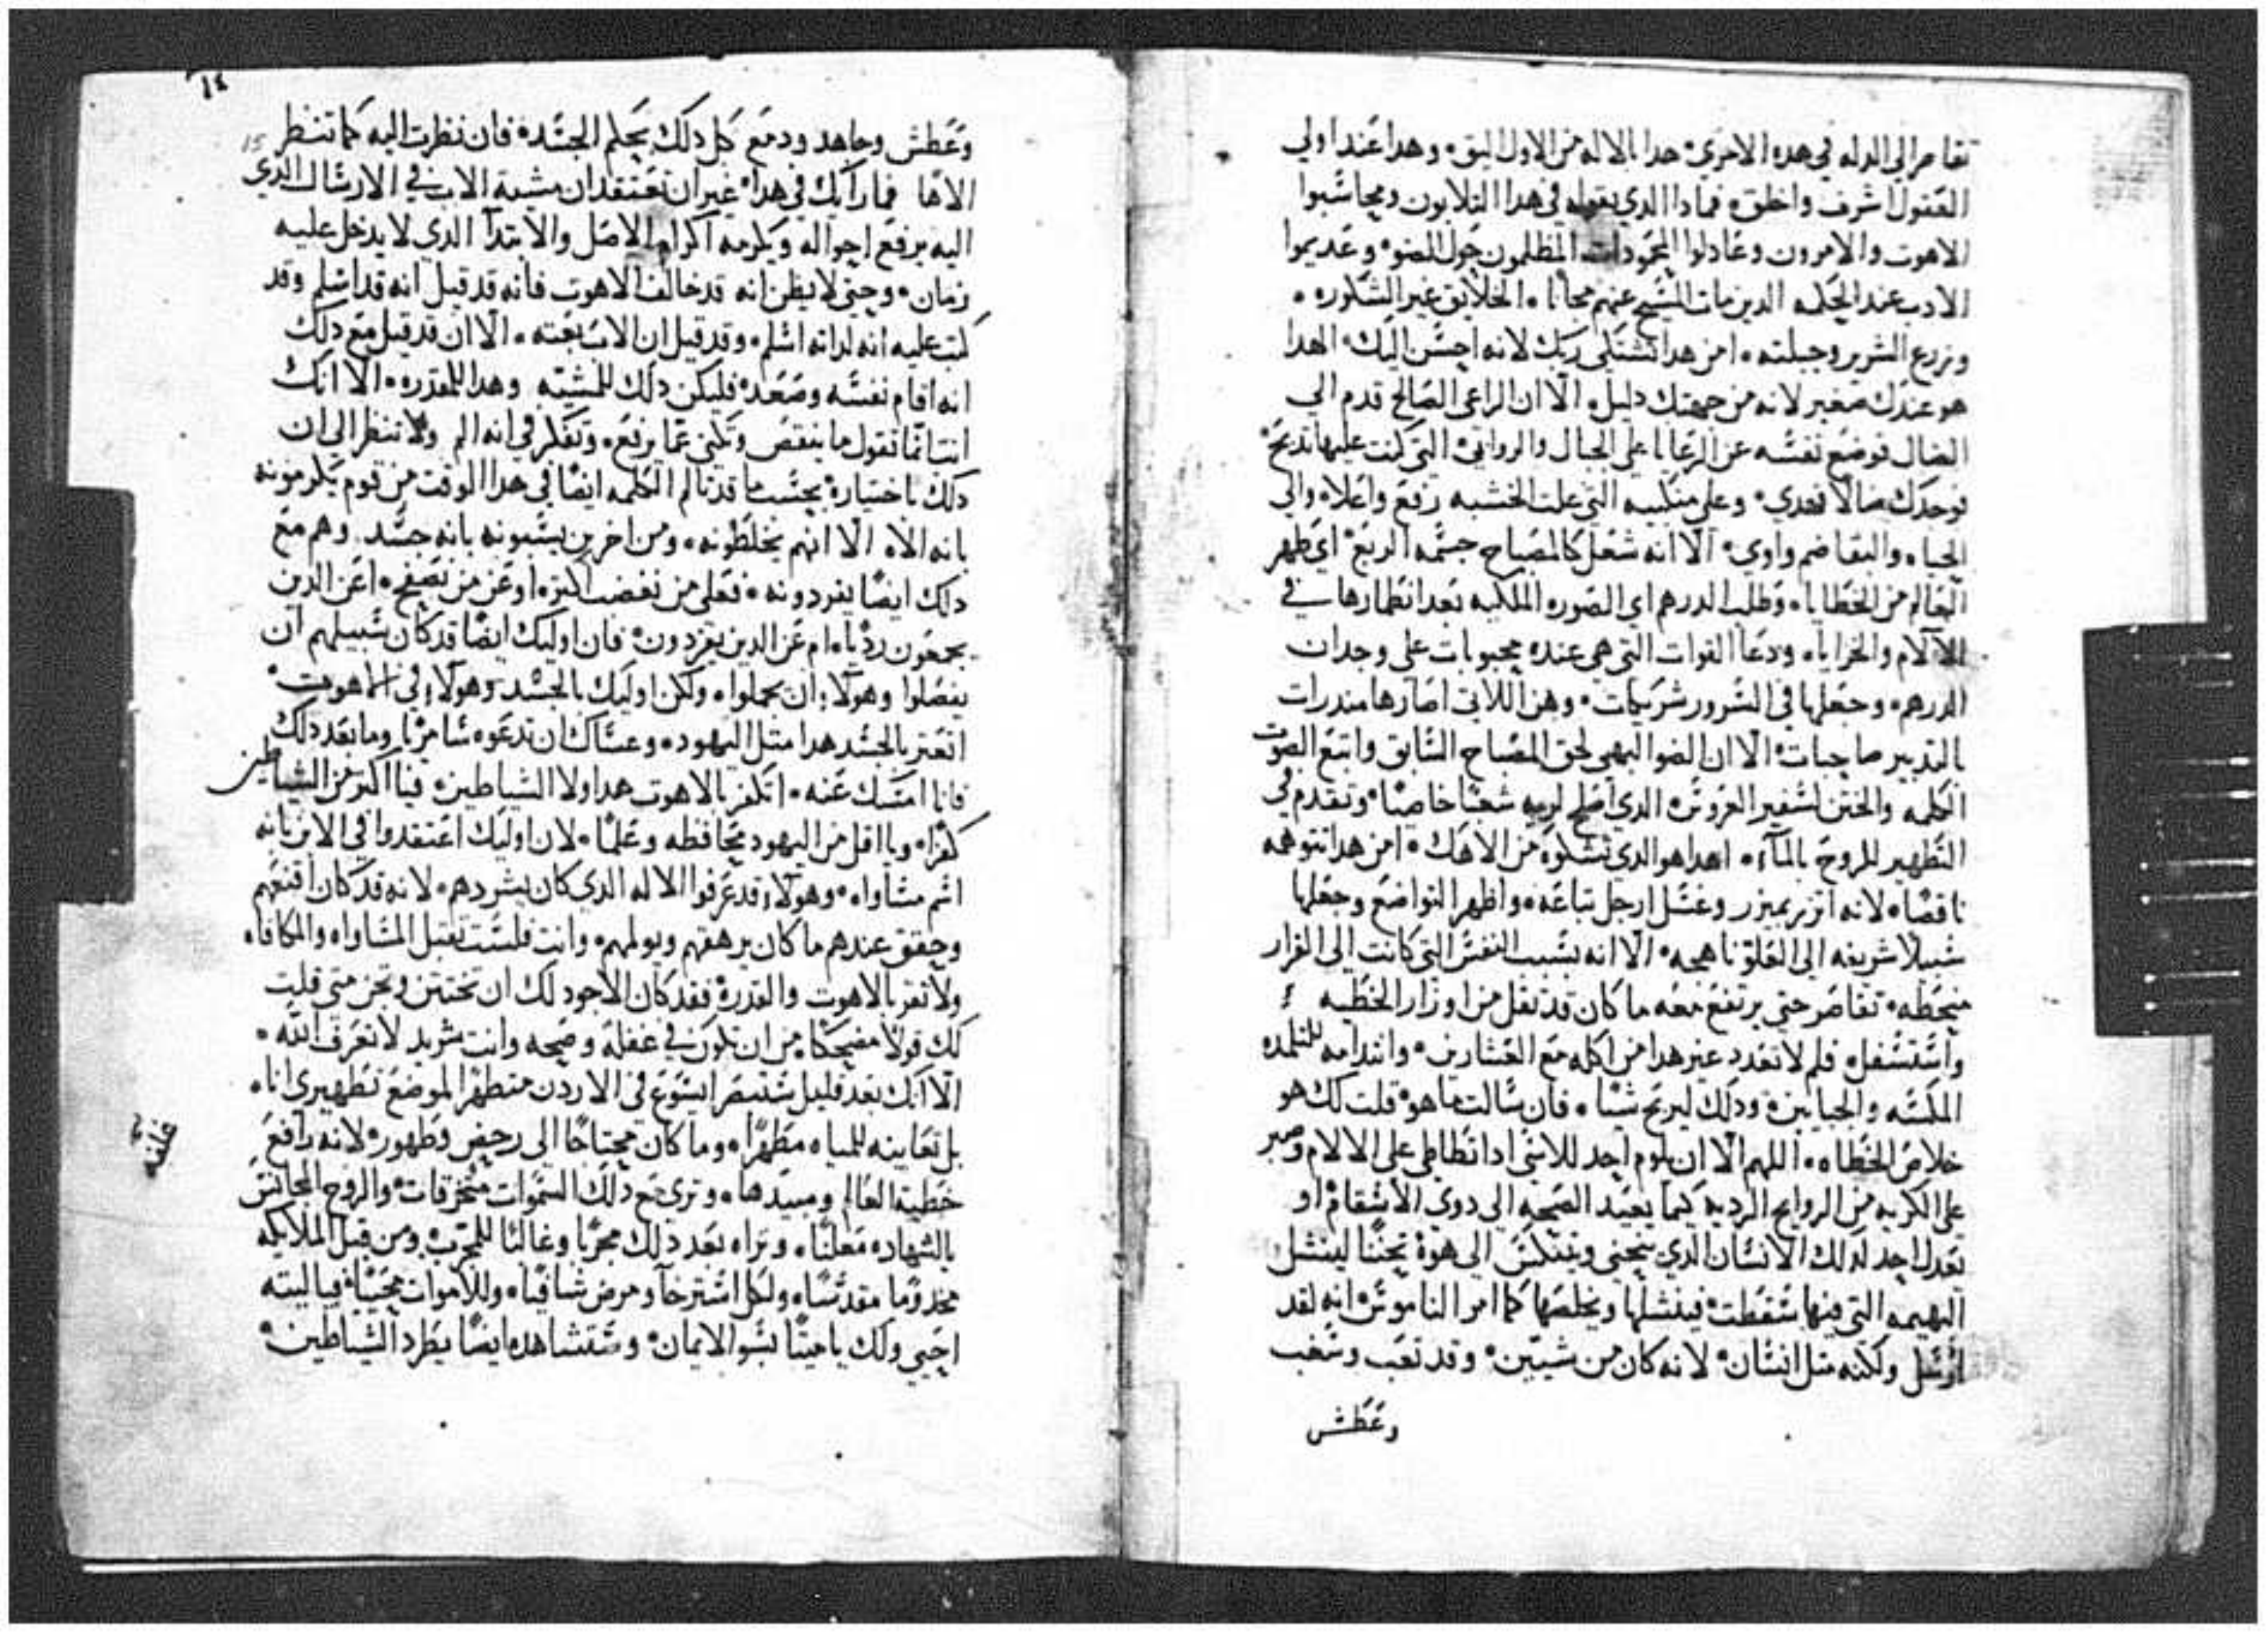 تقاصر الي الدله في هده الاخري هدا بالاله من الاول اليق وهدا عند اولي
العقول اشرف واخلق فمادا الدي يقوله في هدا الثلابون ومحاسبوا
الاهوت والامرون وعادلوا المحمودات المظلمون حول الضو وعديموا
الادب عند الحكمه الدين مات المسيح عنهم مجانا الخلايق غير الشكوره
وزرع الشرير وجبلته امن هدا تشتكي ربك لانه احسن اليك الهدا
هو عندك صغير لانه من جهتك دليل الا ان الراعي الصالح قدم الي
الضال فوضع نفسه عن الرعايا علي الجبال والروابي التي كنت عليها تدبح
فوجدك ضالا فهدي وعلي منكبيه التي علت الخشبه رفع واعلاه والي
الحياه والبقا ضم واوي الا انه شعل كالمصباح جسمه الربع اي طهر
العالم من الخطايا وطلب الدرهم اي الصوره الملكيه بعد انطمارها في
الالام والخزايا ودعا القوات التي هي عنده محبوبات علي وجدان
الدرهم وجعلها في السرور شريكات وهن اللاتي اصارها مندرات
بالتدبير صاحبات الا ان الضو البهي لحق المصباح السابق واتبع الصوت
الكلمه والختن السفير العروس الدي اصلح لربه شعبا خاصا وتقدم في
التطهير للروح بالمآء اهدا هو الدي تشكوه من الاهك امن هدا تتوهمه
ناقصا لانه اتزر بميزر وغسل ارجل تباعه واظهر التواضع وجعلها
سبيلا شريفه الي العلو ناهجه الا انه بسبب النفس التي كانت الي القرار
منحطه تقاصر حتي يرتفع معه ما كان قد ثقل من اوزار الخطيه
واستسفل فلم لا تعدد عنبر هدا من اكله مع العشارين وانتدابه للتلمده
المكسه والجبايين ودلك ليربح شيئا فان سالت ما هو قلت لك هو
خلاص الخطاه اللهم الا ان يلوم احد للاسي ادا تطاطي علي الالام وصبر
علي الكريه من الروايح الرديه كيما يعيد الصحه الي دوي الاسقام او
يعدل احد لدلك الانسان الدي ينحني ويتنكس الي هوة تحننا لينشل
البهيمه التي فيها سقطت فينشلها ويخلصها كما امر الناموس انه لقد
ارسل ولكنه مثل انسان لانه كان من شيين وقد تعب وسغب
وعطش
١٤
15
وعطش وجاهد ودمع كل دلك بحكم الجسد فان نظرت اليه كما تنظر
الاها فما رايك في هدا غير ان تعتقد ان مشية الاب في الارسال الدي
اليه يرفع احواله ويكرمه اكرام الاصل والابتدآ الدي لا يدخل عليه
زمان وحتي لا يظن انه قد خالف الاهوت فانه قد قيل انه قد اسلم وقد
كتب عليه انه لداته اسلم وقد قيل ان الاب بعثه الا ان قد قيل مع دلك
انه اقام نفسه وصعد فليكن دلك للمشيه وهدا للمقدره الا انك
انت انما تقول ما ينقص وتكني عما يرفع وتفكر في انه الم ولا تنظر الي ان
دلك باختياره بحسب ما قد تالم الكلمه ايضا في هدا الوقت من قوم يكرمونه
بانه الاه الا انهم يخلطونه ومن اخرين يسبونه بانه جسد وهم مع
دلك ايضا يفردونه فعلي من نغضب اكثر او عن من نصفح اعن الدين
يجمعون رديا ام عن الدين يفردون فان اوليك ايضا قد كان سبيلهم ان
يفصلوا وهولآء ان يجملوا ولكن اوليك بالجسد وهولآء في الاهوت
اتعثر بالجسد هدا مثل اليهود وعساك ان تدعوه سامريا وما بعد دلك
فانا امسك عنه اتكفر بالاهوت هدا ولا الشياطين فيا اكثر من الشياطين
كفرا ويا اقل من اليهود محافظه وعلما لان اوليك اعتقدوا في الابن بانه
اسم مساواه وهولآء قد عرفوا الاله الدي كان يشردهم لانه قد كان اقنعهم
وحقق عندهم ما كان يرهقهم ويولمهم وانت فلست تقبل المساواه والمكافاه
ولا تقر بالاهوت والقدره فقد كان الاجود لك ان تختتن وتجن متي قلت
لك قولا مضحكا من ان تكون في غفله وصحه وانت شريد لا تعرف الله
الا انك بعد قليل ستبصر ايسوع في الاردن متطهرا لموضع تطهيري انا
بل تعاينه للمياه مطهرا وما كان محتاجا الي رحيض وطهور لانه رافع
غلبه
خطية العالم ومبيدها وتري مع دلك السموات متخرقات والروح المجانس
بالشهاده معلنا وتراه بعد دلك مجربا وغالبا للمجرب ومن قبل الملايكه
مخدوما مقدسا ولكل استرخآ ومرض شافيا وللاموات محييا فيا ليته
احيي ولك يا ميتا بسو الايمان وستشاهده ايضا يطرد الشياطين